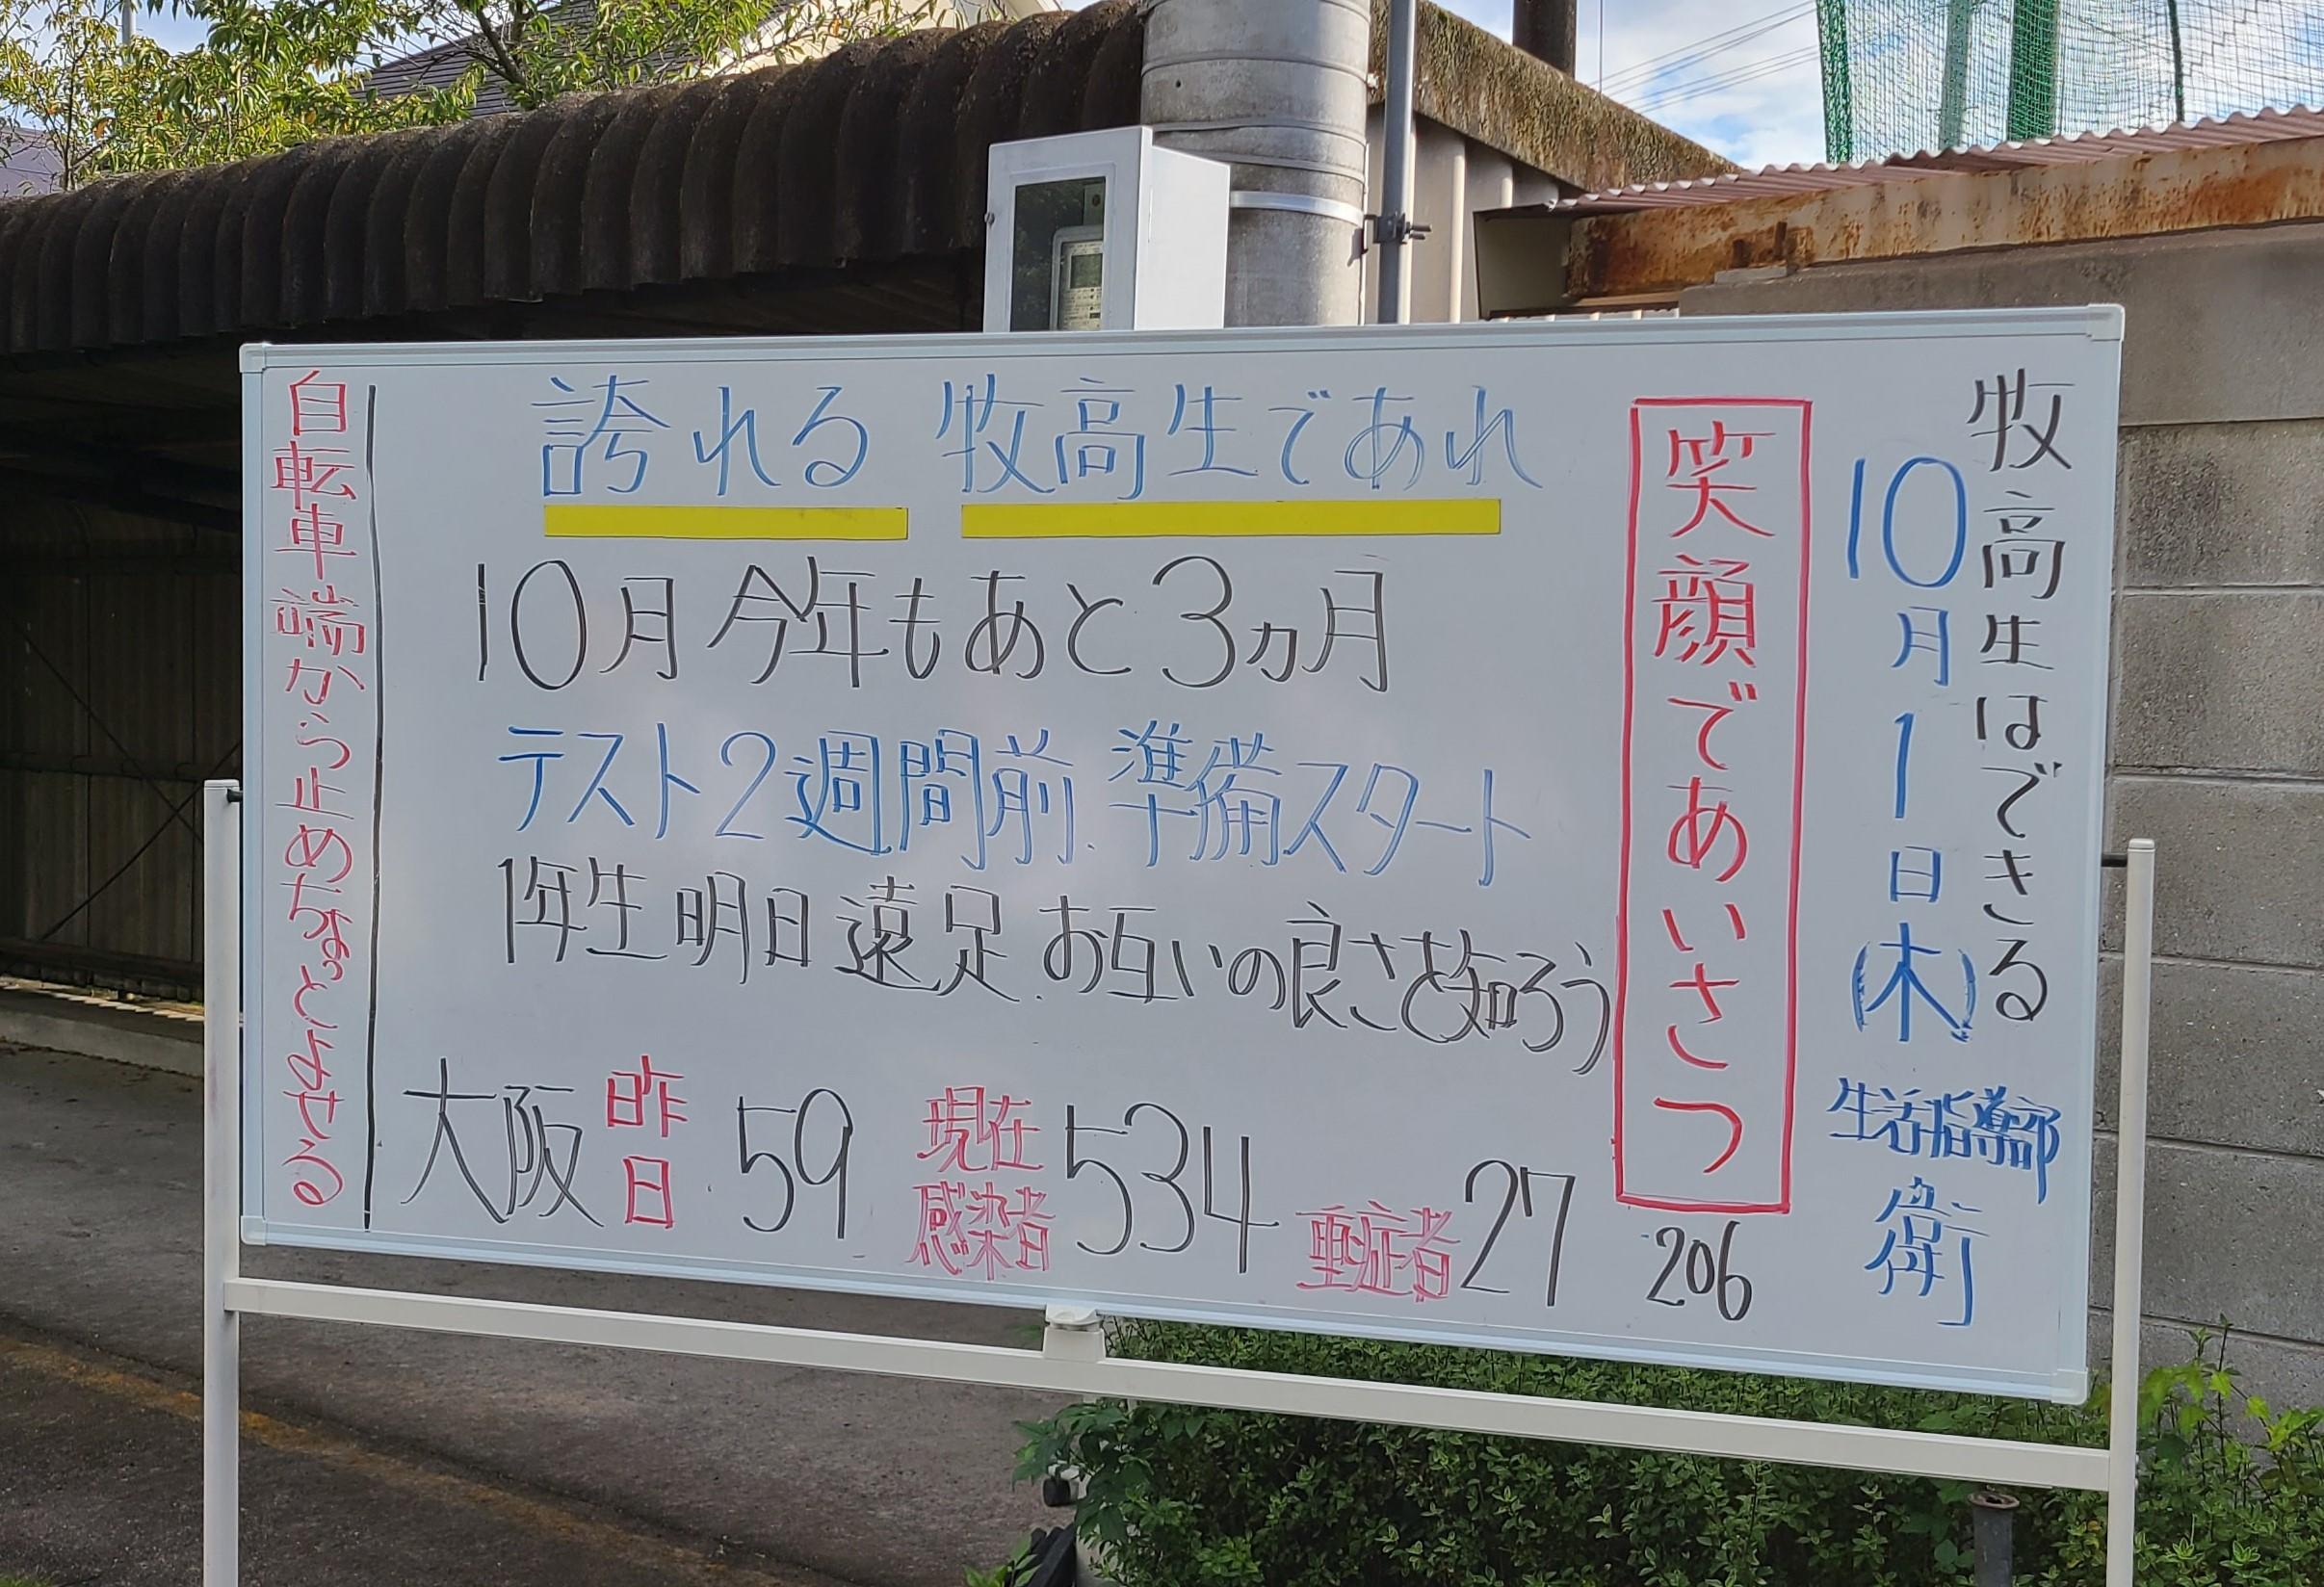 牧高生はできる
10月1日(木)
生活指導部
衛
笑顔であいさつ
206
誇れる 牧高生であれ
10月 今年もあと3ヵ月
テスト2週間前.準備スタート
1年生 明日 遠足.お互いの良さを知ろう
大阪 昨日 59 現在感染者 534 重症者 27
自転車 端から止めちょっとよせる